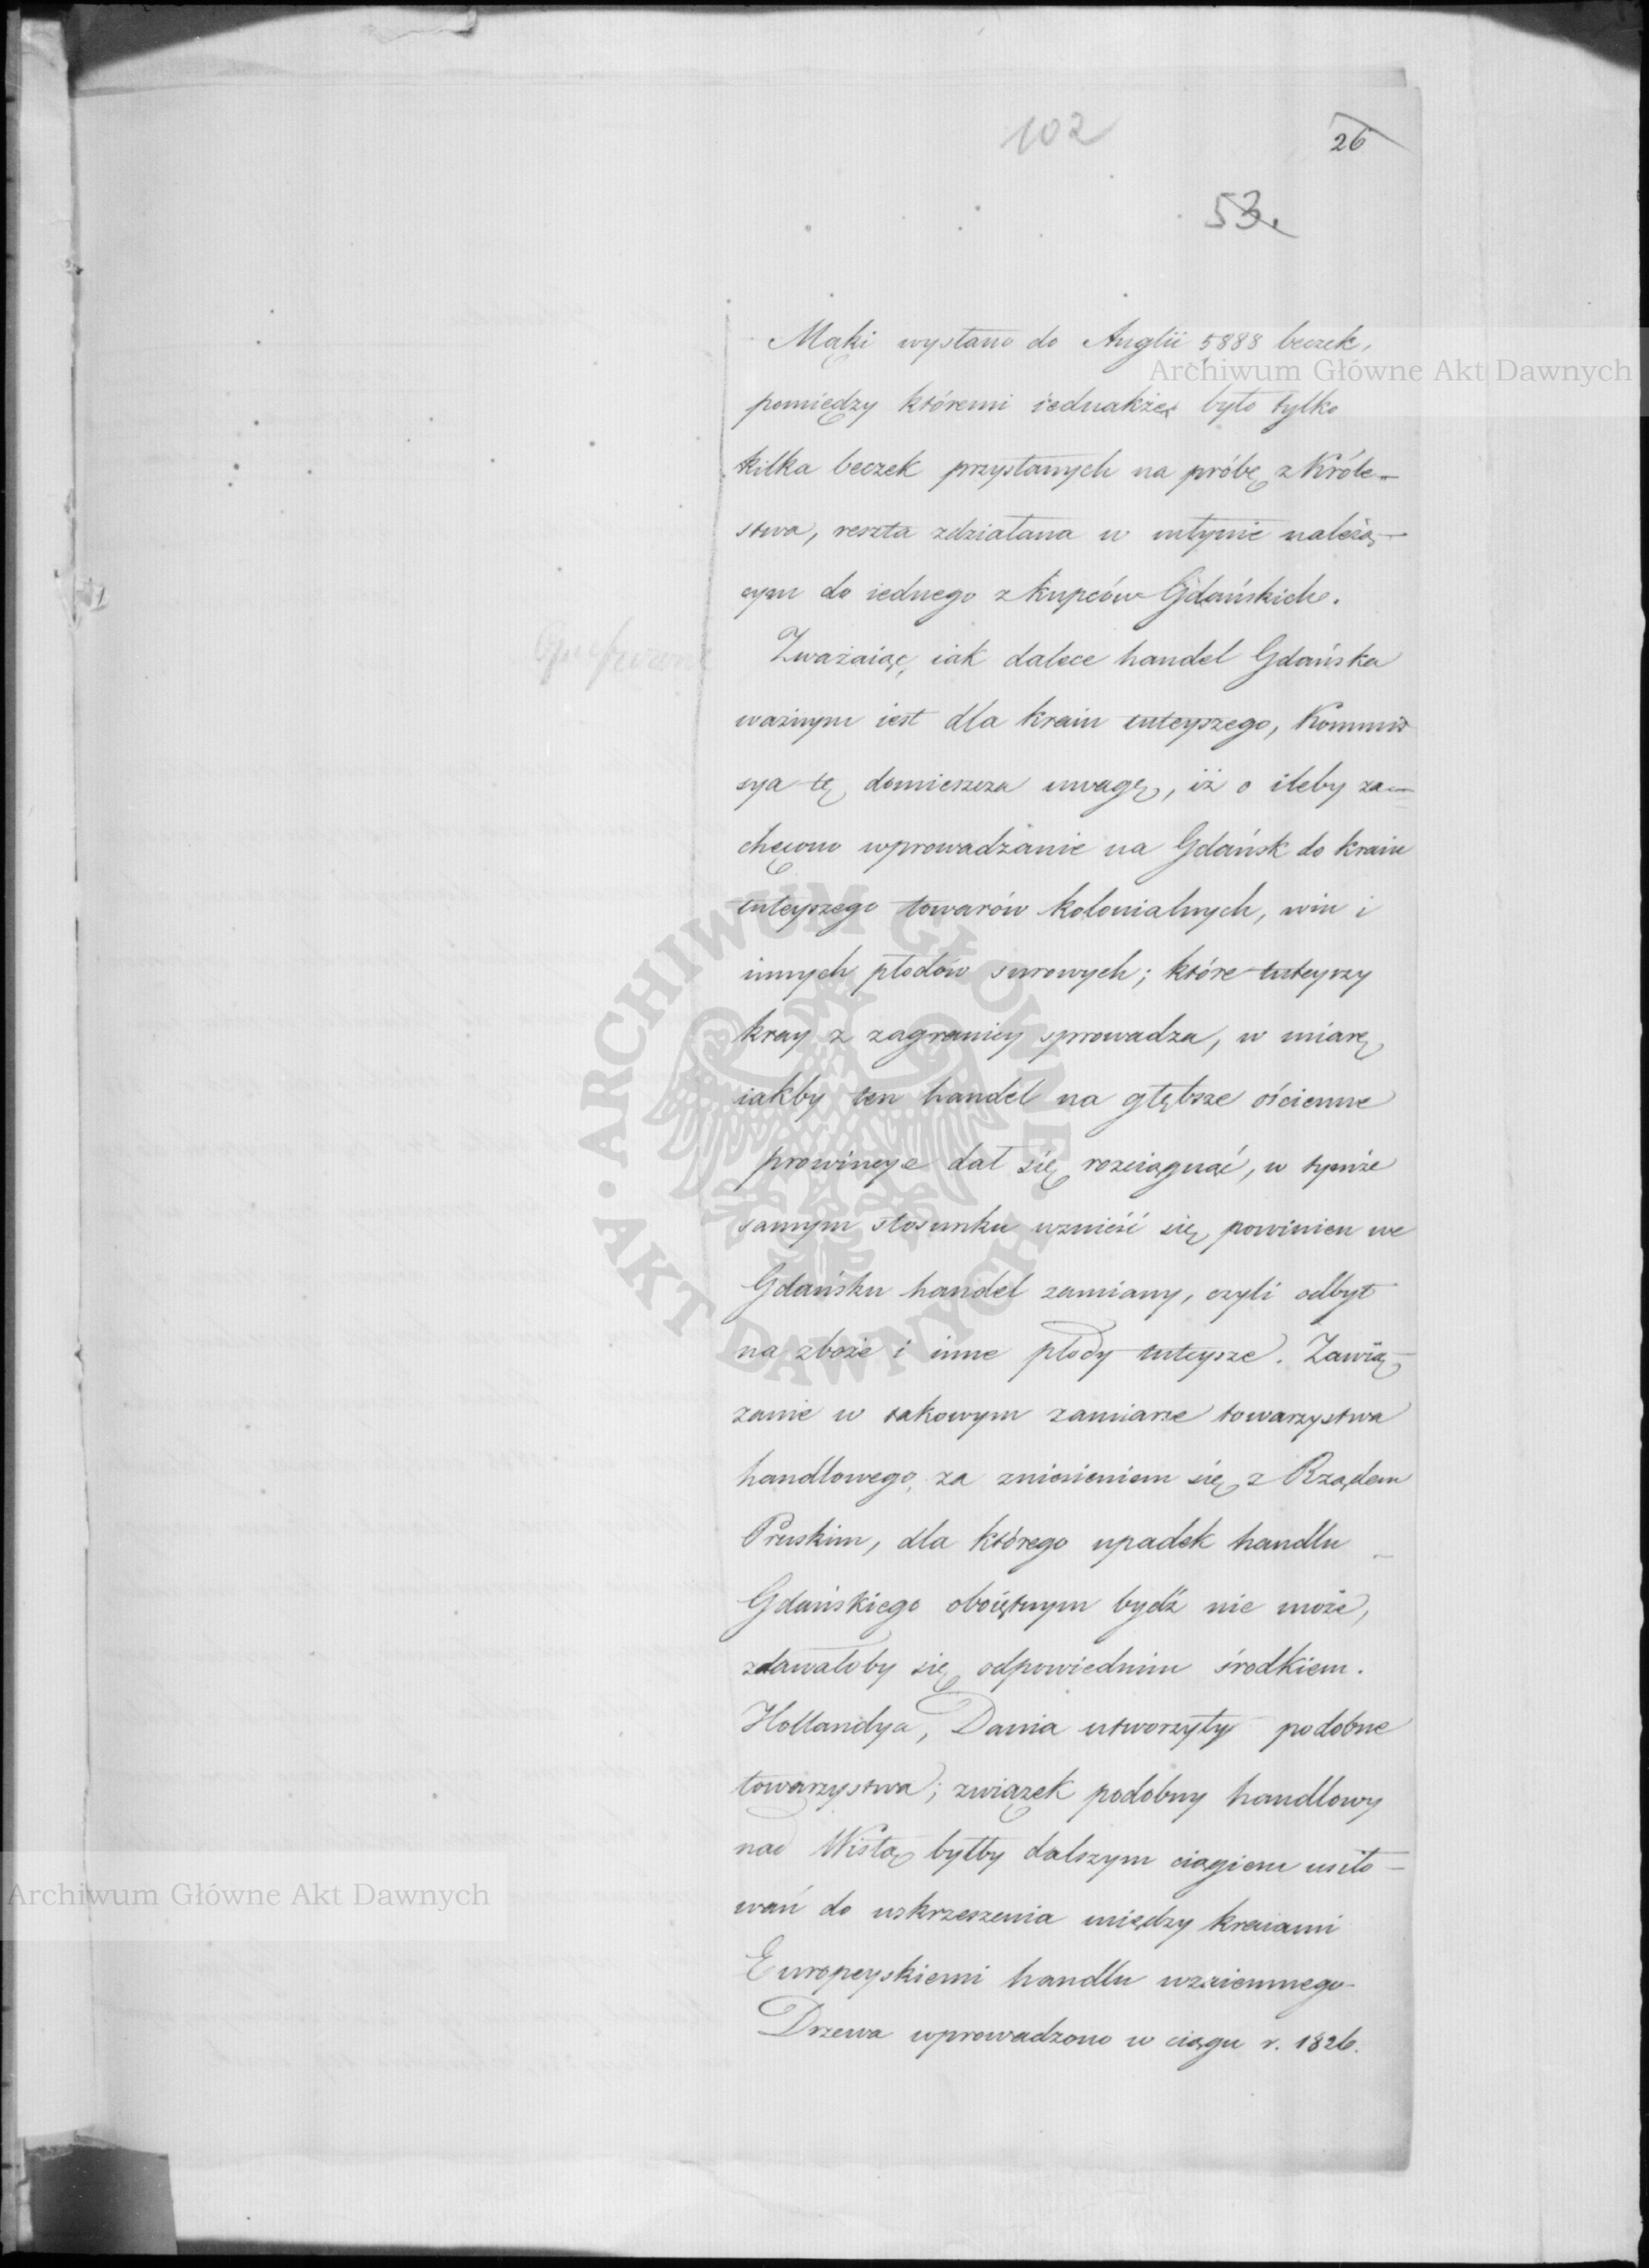 102
26
53.
Mąki wysłano do Anglii 5888 beczek,
pomiędzy któremi iednakże było tylko
kilka beczek przysłanych na próbę z Króle-
stwa, reszta zdziałana w młynie należą-
cym do iednego z kupców Gdańskich.
Zważaiąc, iak dalece handel Gdańska
ważnym iest dla kraiu tuteyszego, Kommis
sya tę domieszcza uwagę, iż o ileby za-
chęcono wprowadzanie na Gdańsk do kraiu
tuteyszego towarów kolonialnych, win i
innych płodów surowych; które tuteyszy
kray z zagranicy sprowadza, w miarę
iakby ten handel na głębsze ościenne
prowincye dał się rozciągnąć, w tymże
samym stosunku wznieść się powinien we
Gdańsku handel zamiany, czyli odbyt
na zboże i inne płody tuteysze. Zawią-
zanie w takowym zamiarze towarzystwa
handlowego, za zniesieniem się z Rządem
Pruskim, dla którego upadek handlu
Gdańskiego oboiętnym bydź nie może,
zdawałoby się odpowiednim środkiem.
Hollandya, Dania utworzyły podobne
towarzystwa; związek podobny handlowy
nad Wisłą byłby dalszym ciągiem usiło-
wań do wskrzeszenia między kraiami
Europeyskiemi handlu wzaiemnego-
Drzewa wprowadzono w ciągu r. 1826.
Archiwum Główne Akt Dawnych
ARCHIWUM GŁÓWNE · AKT DAWNYCH ·
Archiwum Główne Akt Dawnych